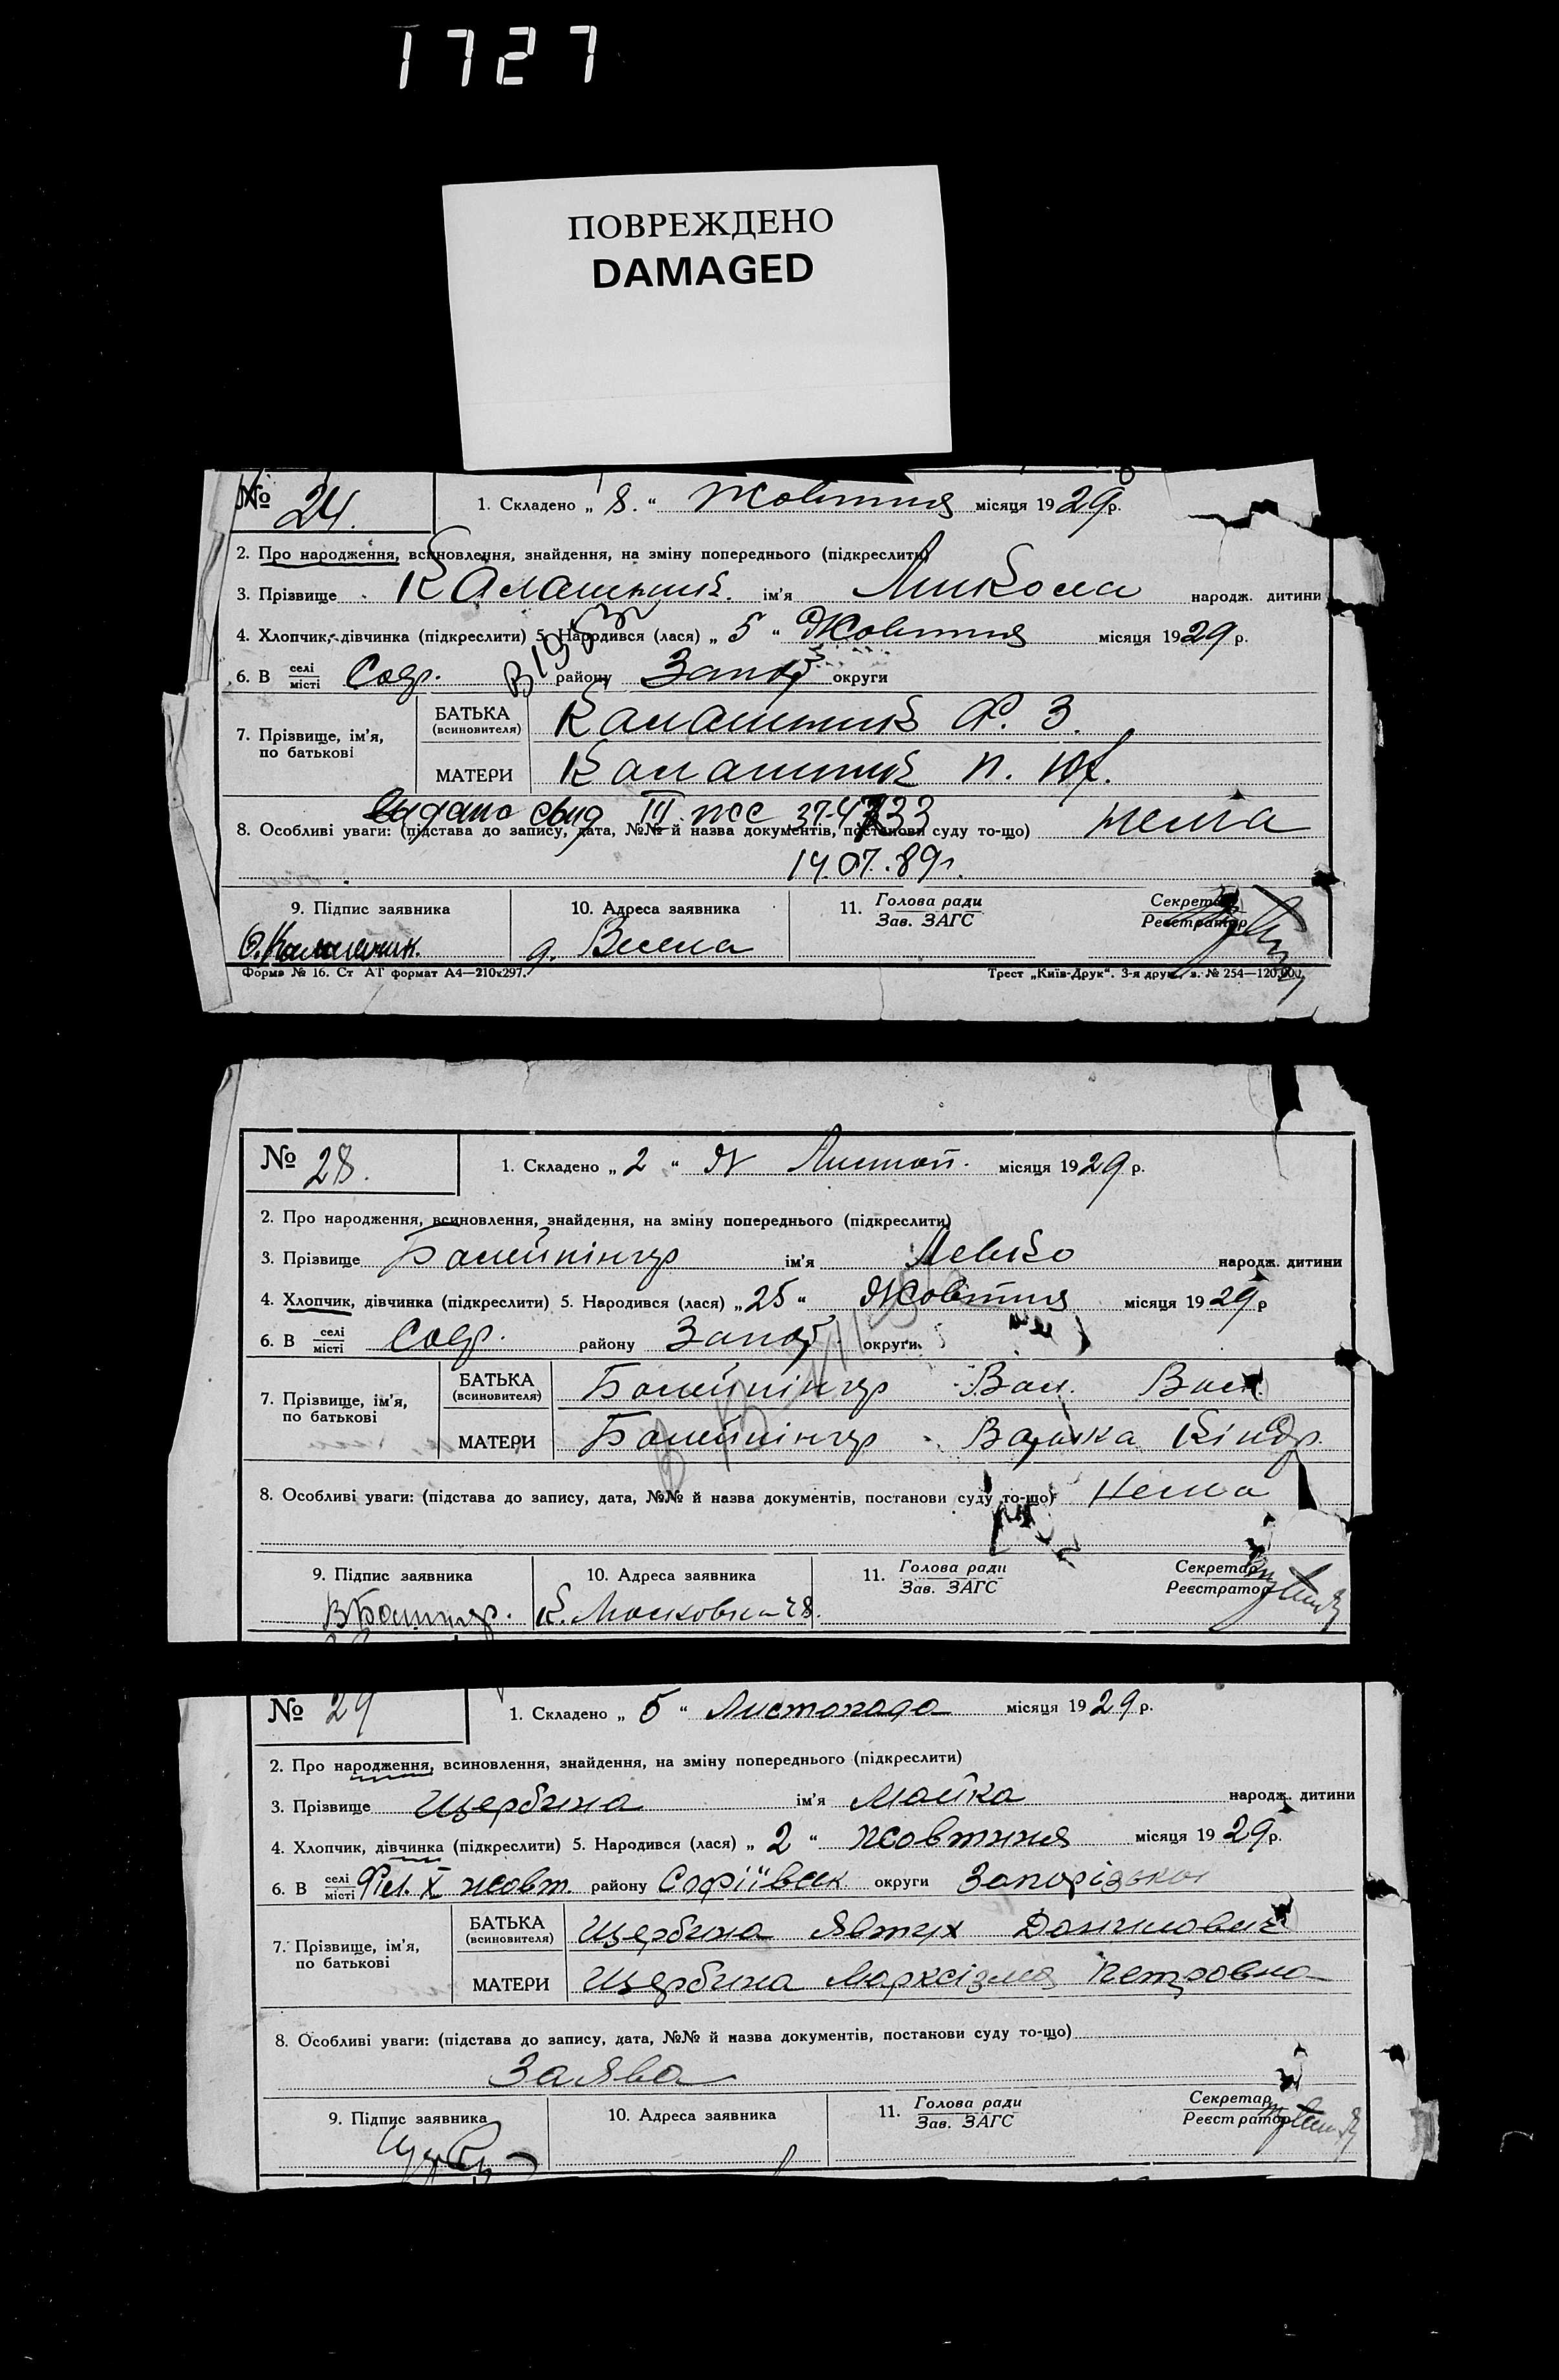 1727
ПОВРЕЖДЕНО
DAMAGED
№ 24. 1. Складено „ 8. “ Жовтня місяця 1929 р.
2. Про народження, всиновлення, знайдення, на зміну попереднього (підкреслити)
3. Прізвище Калашник. ім'я Микола народж. дитини
4. Хлопчик, дівчинка (підкреслити) 5. Народився (лася) „ 5 “ Жовтня місяця 1929 р.
6. В селі місті Соф. району Запор округи
7. Прізвище, ім'я, по батькові
БАТЬКА (всиновителя) Калашник О. З.
МАТЕРИ Калашник П. Юх.
видано свид III ЖС 37-4733
8. Особливі уваги: (підстава до запису, дата, №№ й назва документів, постанови суду то-що) нема
14.07.89г.
9. Підпис заявника 10. Адреса заявника 11. Голова ради Зав. ЗАГС Секретар Реєстратор
О. Калашник. д. Весела
Форма № 16. Ст АТ формат А4—210х297. Трест „Київ-Друк“. 3-я друк. з. № 254—120,000
№ 28. 1. Складено „ 2 “ Листоп. місяця 1929 р.
2. Про народження, всиновлення, знайдення, на зміну попереднього (підкреслити)
3. Прізвище ім'я Левко народж. дитини
4. Хлопчик, дівчинка (підкреслити) 5. Народився (лася) „ 25 “ Жовтня місяця 1929 р
6. В селі місті Соф. району Запор округи
7. Прізвище, ім'я, по батькові
БАТЬКА (всиновителя) Вас.
МАТЕРИ Варька Кіндр.
8. Особливі уваги: (підстава до запису, дата, №№ й назва документів, постанови суду то-що) Нема
9. Підпис заявника 10. Адреса заявника 11. Голова ради Зав. ЗАГС Секретар Реєстратор
К. Московка 28.
№ 29 1. Складено „ 5 “ Листопада місяця 1929 р.
2. Про народження, всиновлення, знайдення, на зміну попереднього (підкреслити)
3. Прізвище Щербина ім'я Майка народж. дитини
4. Хлопчик, дівчинка (підкреслити) 5. Народився (лася) „ 2 “ жовтння місяця 1929 р.
6. В селі місті X жовт. району Софіївськ округи Запорізької
7. Прізвище, ім'я, по батькові
БАТЬКА (всиновителя) Щербина Явтух Данилович
МАТЕРИ Щербина Марксізма Петровна
8. Особливі уваги: (підстава до запису, дата, №№ й назва документів, постанови суду то-що)
Заява
9. Підпис заявника 10. Адреса заявника 11. Голова ради Зав. ЗАГС Секретар Реєстратор